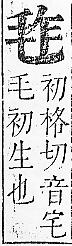 初格切音宅
毛初生也